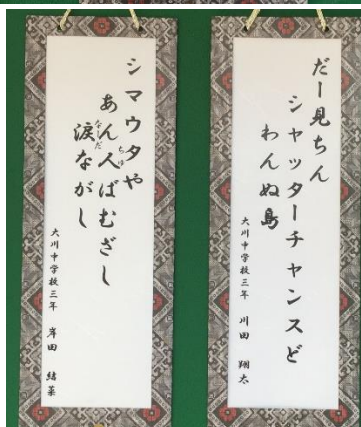 だー見ちん
シャッターチャンスど
わんぬ島
大川中学校三年 川田 翔太
シマウタや
あん人ばむざし
ちゅ
涙ながし
なだ
大川中学校三年 岸田 緒菜